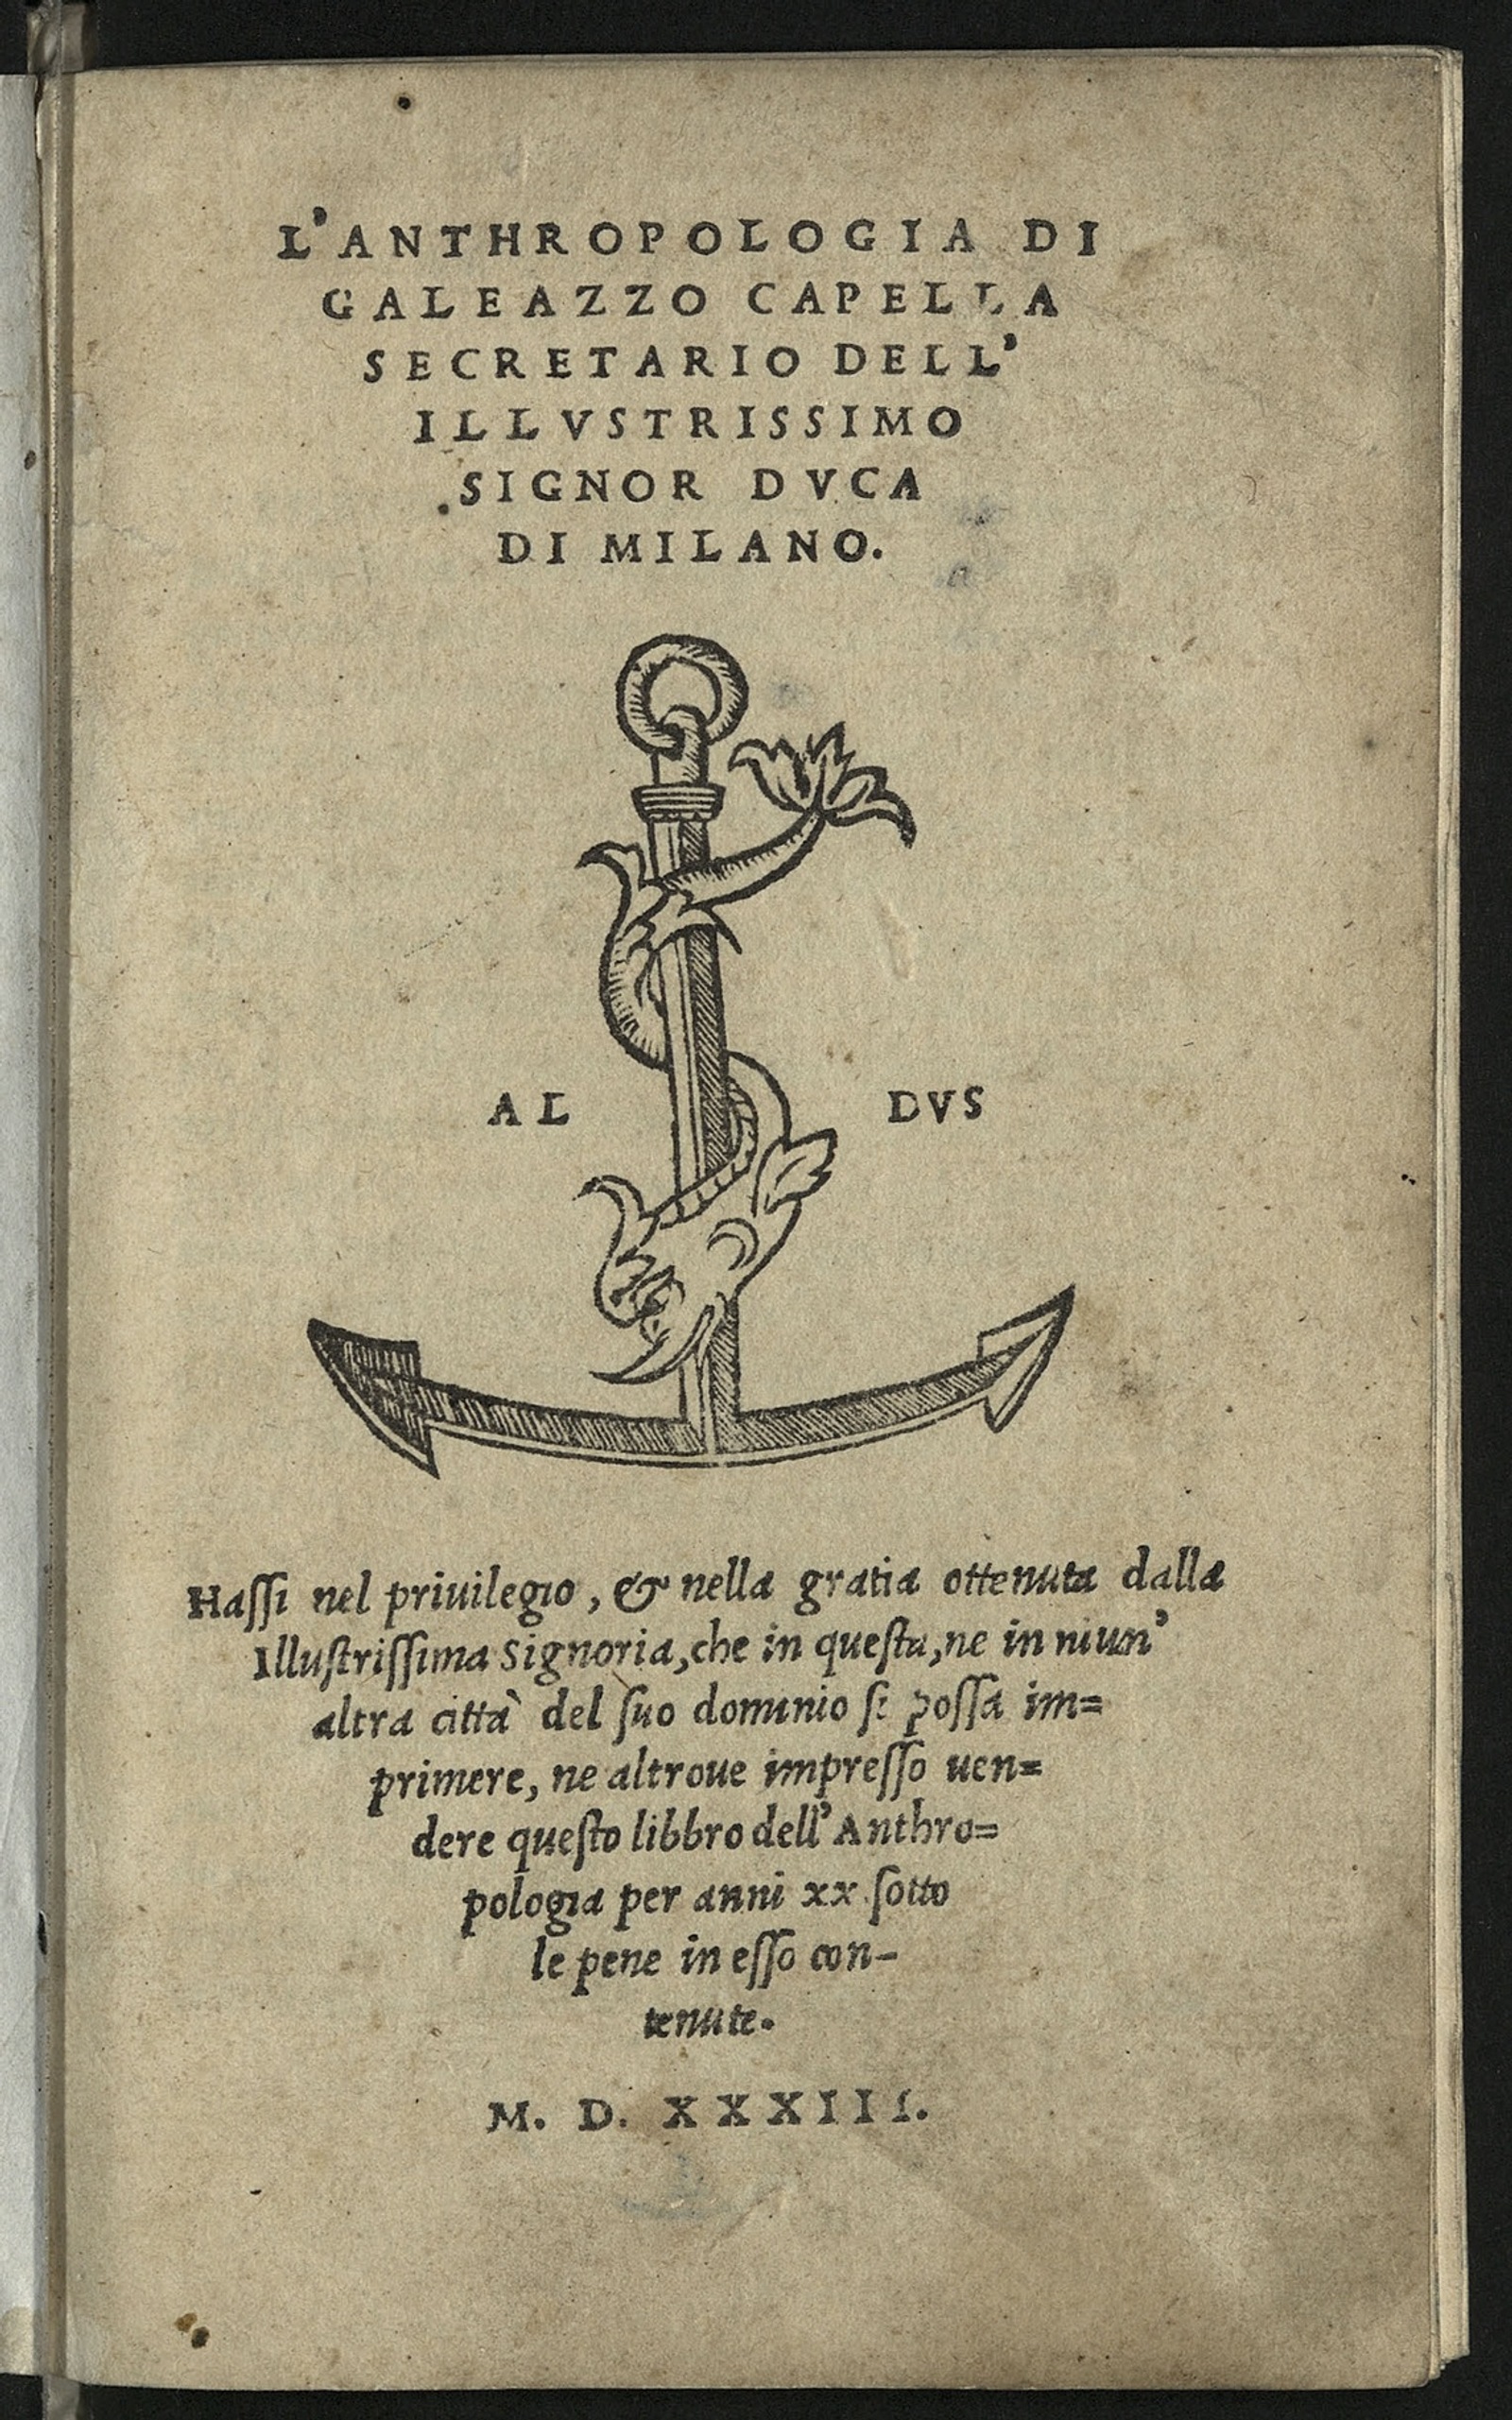 L'ANTHROPOLOGIA DI
GALEAZZO CAPELLA
SECRETARIO DELL'
ILLVSTRISSIMO
SIGNOR DVCA
DI MILANO.
AL DVS
Haſſi nel priuilegio, & nella gratia ottenuta dalla
Illuſtriſſima Signoria, che in queſta, ne in niun'
altra città del ſuo dominio ſi poſſa im=
primere, ne altroue impreſſo uen=
dere queſto libbro dell'Anthro=
pologia per anni xx ſotto
le pene in eſſo con-
tenute.
M. D. XXXIII.